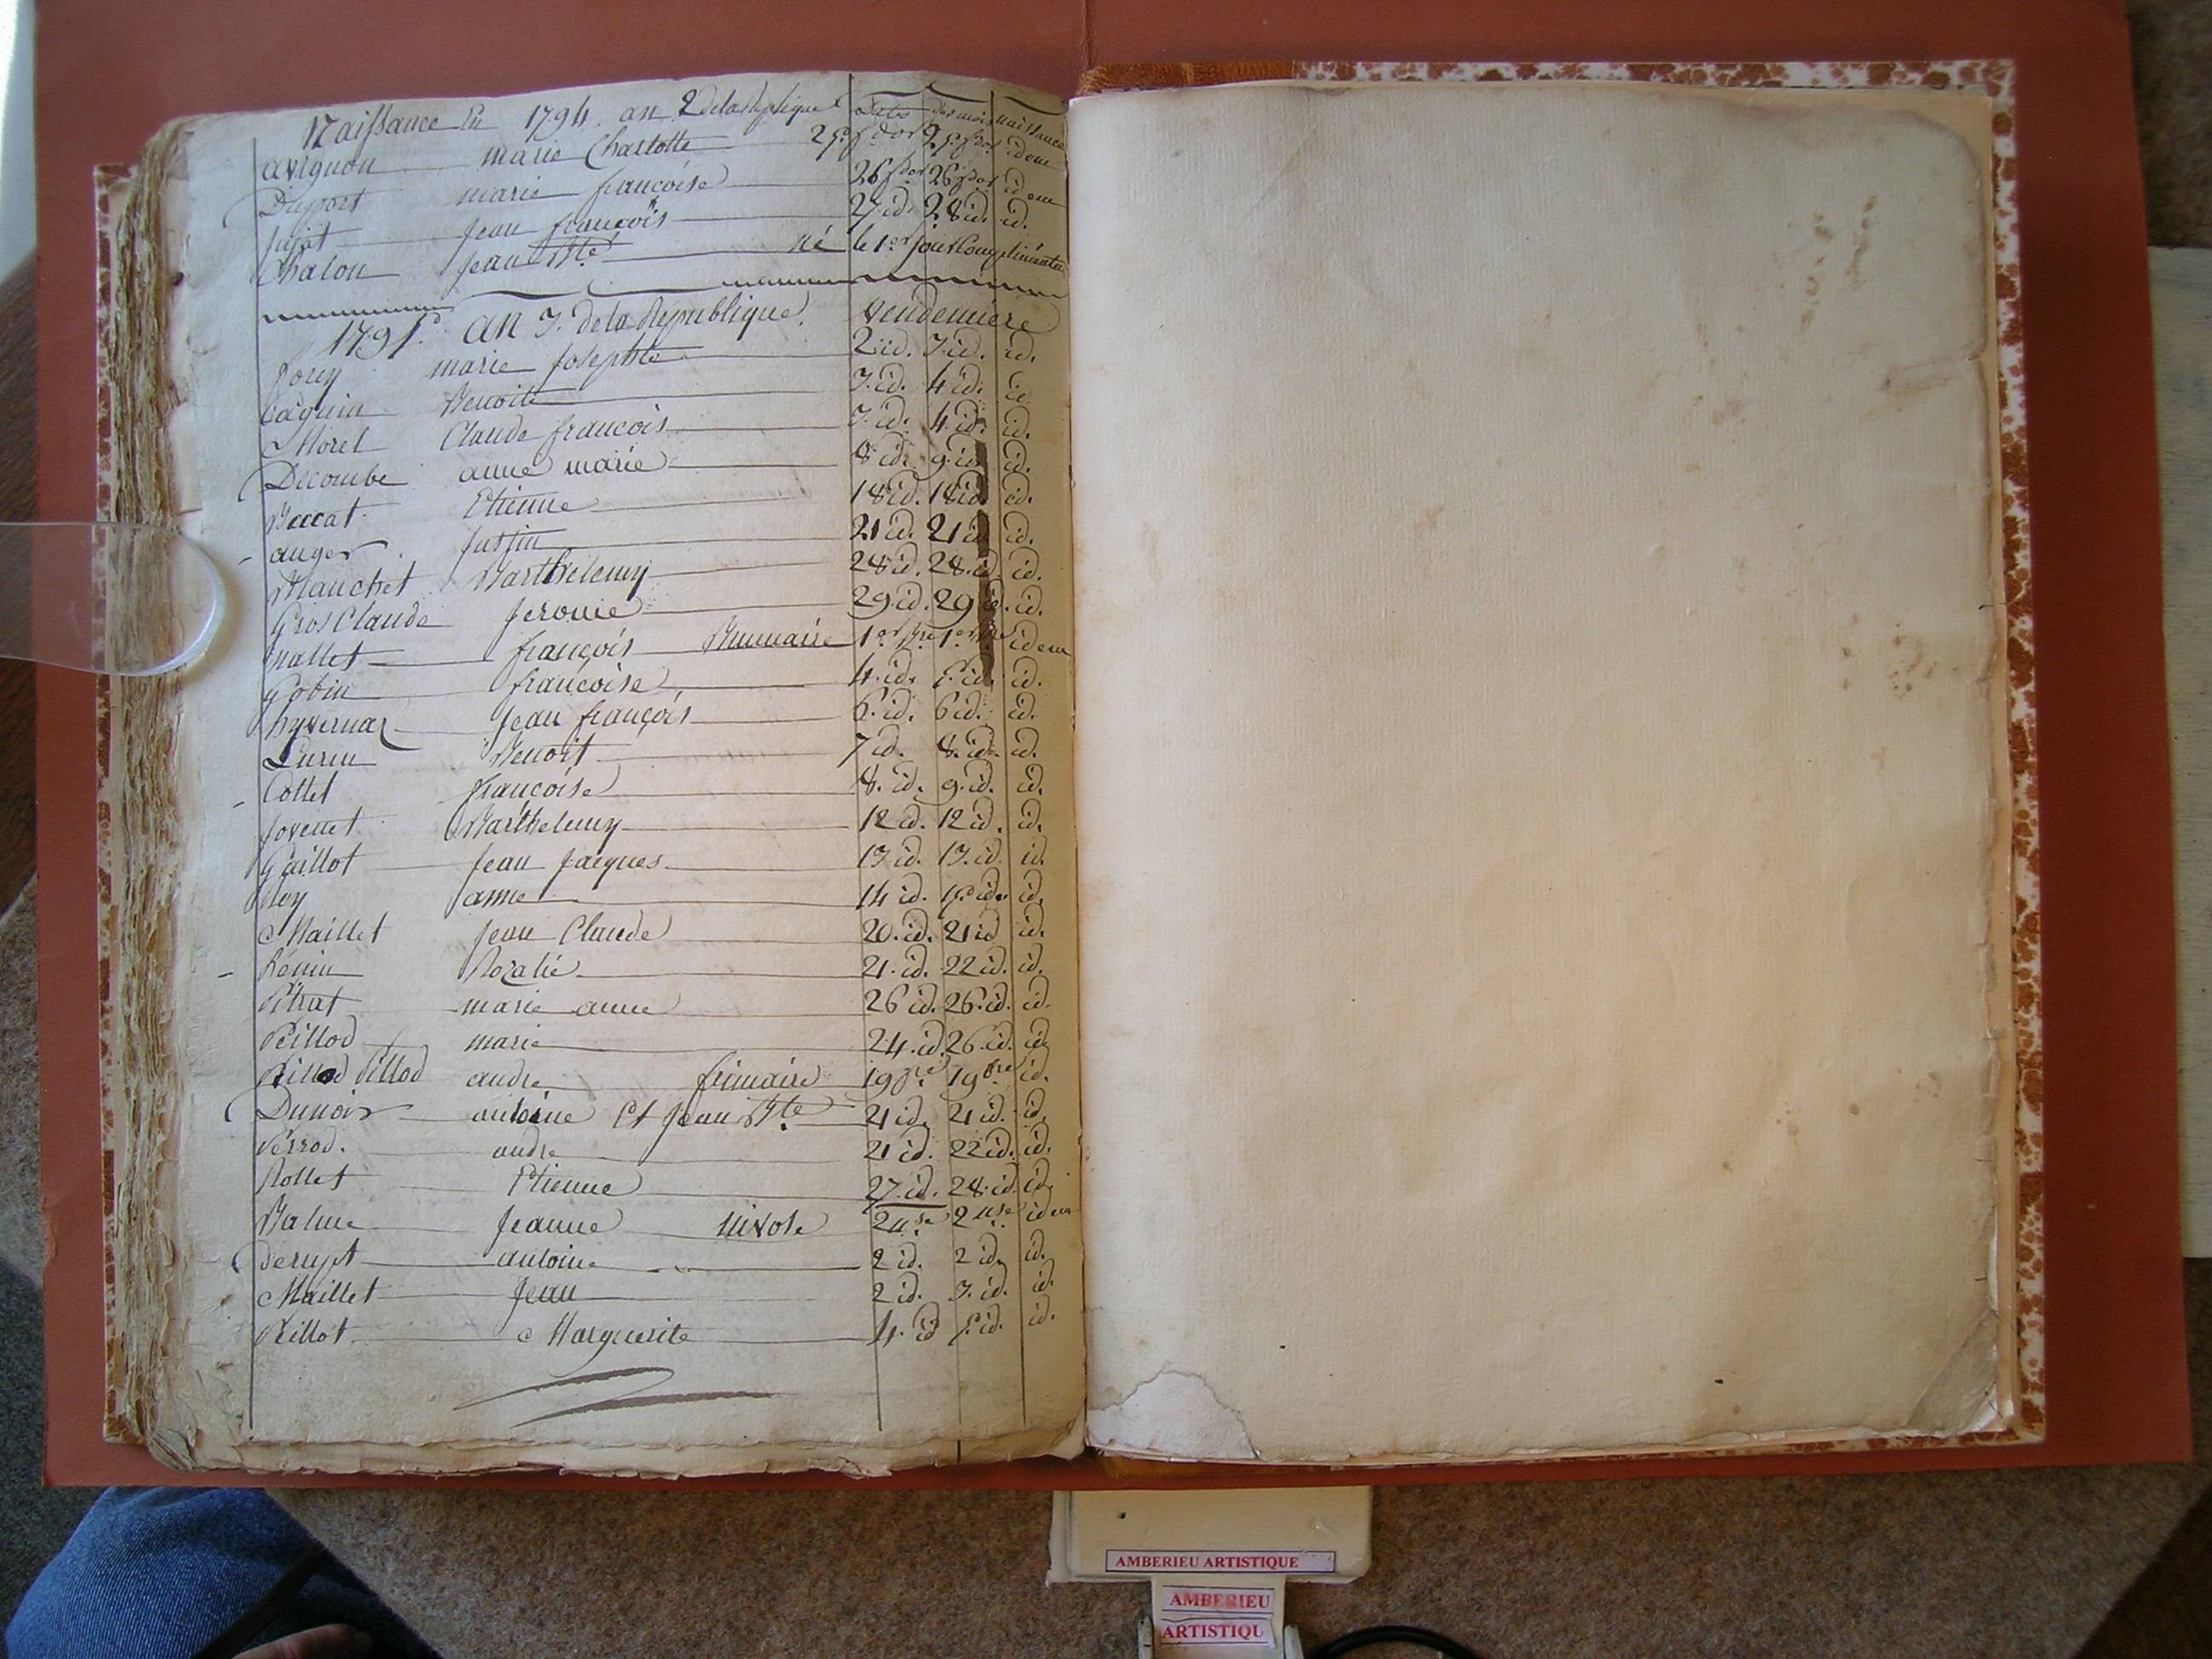 Naissance En 1794. an 2 dela Republique Dates des mois naissance
avignon marie Charlotte 25. fdor 25. fdor idem
Duport marie francoise 26 fdor 26 fdor idem
Jujat Jean francois 27 id. 28 id. id.
Chalon Jean Bte né le 1er jour Complimentaire
1795. an 3. dela Republique. Vendemiere
marie Josephte 2 id. 3. id. id.
Caguin Benoite 3. id. 4 id. id
Morel Claude francois 3. id. 4. id. id.
Decombe anne marie 8 id. 9. id. id.
Beccat Etienne 18 id. 18 id. id.
auger Justin 21 id. 21 id. id.
Blanchet Barthelemy 28 id. 28. id. id.
Gros Claude Jerome 29. id. 29 id. id.
Mallet françois Brumaire 1er bre 1er bre idem
Gobin francoise 4. id. 5. id. id.
hyvernar Jean françois 6. id. 6 id. id.
Lurin Benoit 7 id. 8. id. id.
Collet francoise 8. id. 9. id. id.
Jovenet Barthelemy 12 id. 12 id. id.
Gaillot Jean Jacques 13. id. 13. id. id.
Rey anne 14 id. 15. id. id.
Maillet Jean Claude 20. id. 21 id id.
Rénin Rozalie 21. id. 22 id. id.
Pitrat marie anne 26 id. 26. id. id.
Peillod marie 24. id. 26. id. id.
Pillod andre frimaire 19 bre 19 bre id.
Dunoir antoine Et Jean Bte 21 id. 21 id. id.
Perrod. andre 21 id. 22 id. id.
Rollet Etienne 27. id. 28. id id.
Balme Jeanne nivose 2 nse 2 nse idem
derupt antoine 2 id. 2 id. id.
Maillet Jean 2 id. 3. id. id
Peillot Marguerite 4. id 5. id. id.
AMBERIEU ARTISTIQUE
AMBERIEU
ARTISTIQU